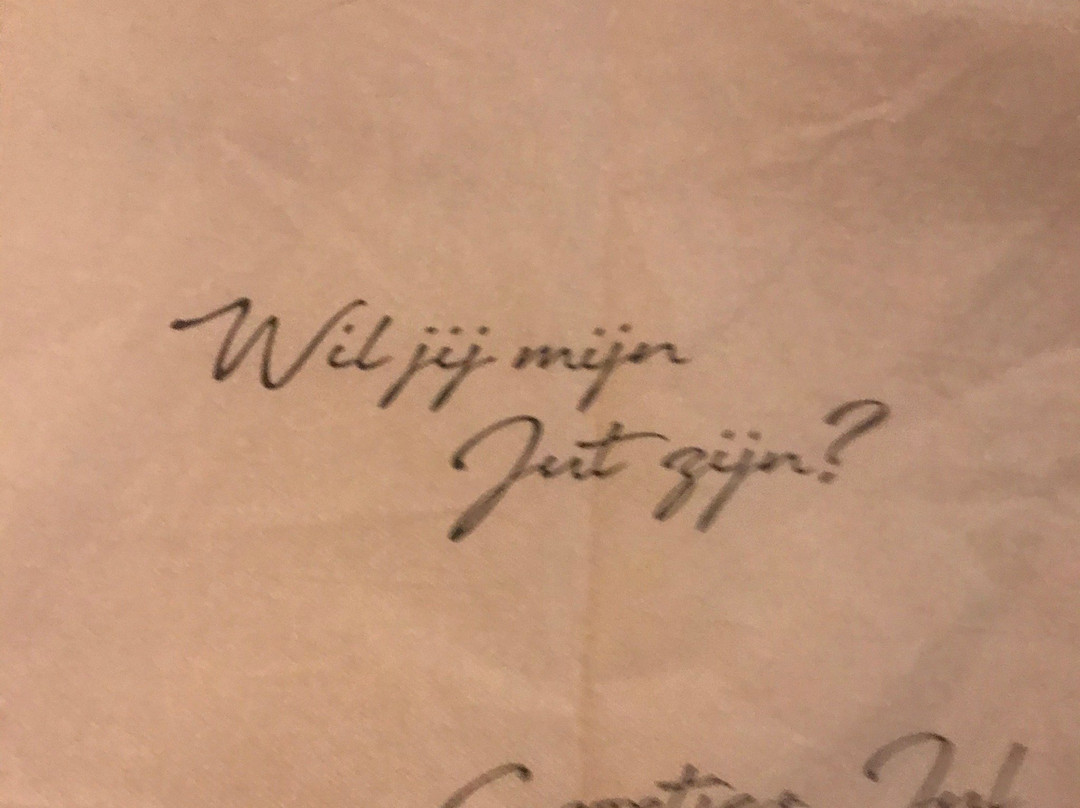 Wil jij mijn
Jut zijn?